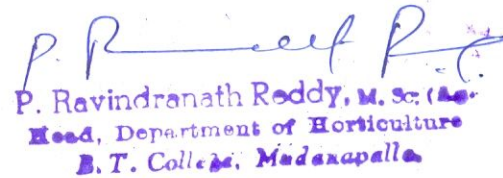 P. Ravindranath Reddy, M. Sc. (Ag.
Head, Department of Horticulture
B. T. College, Madanapalle.